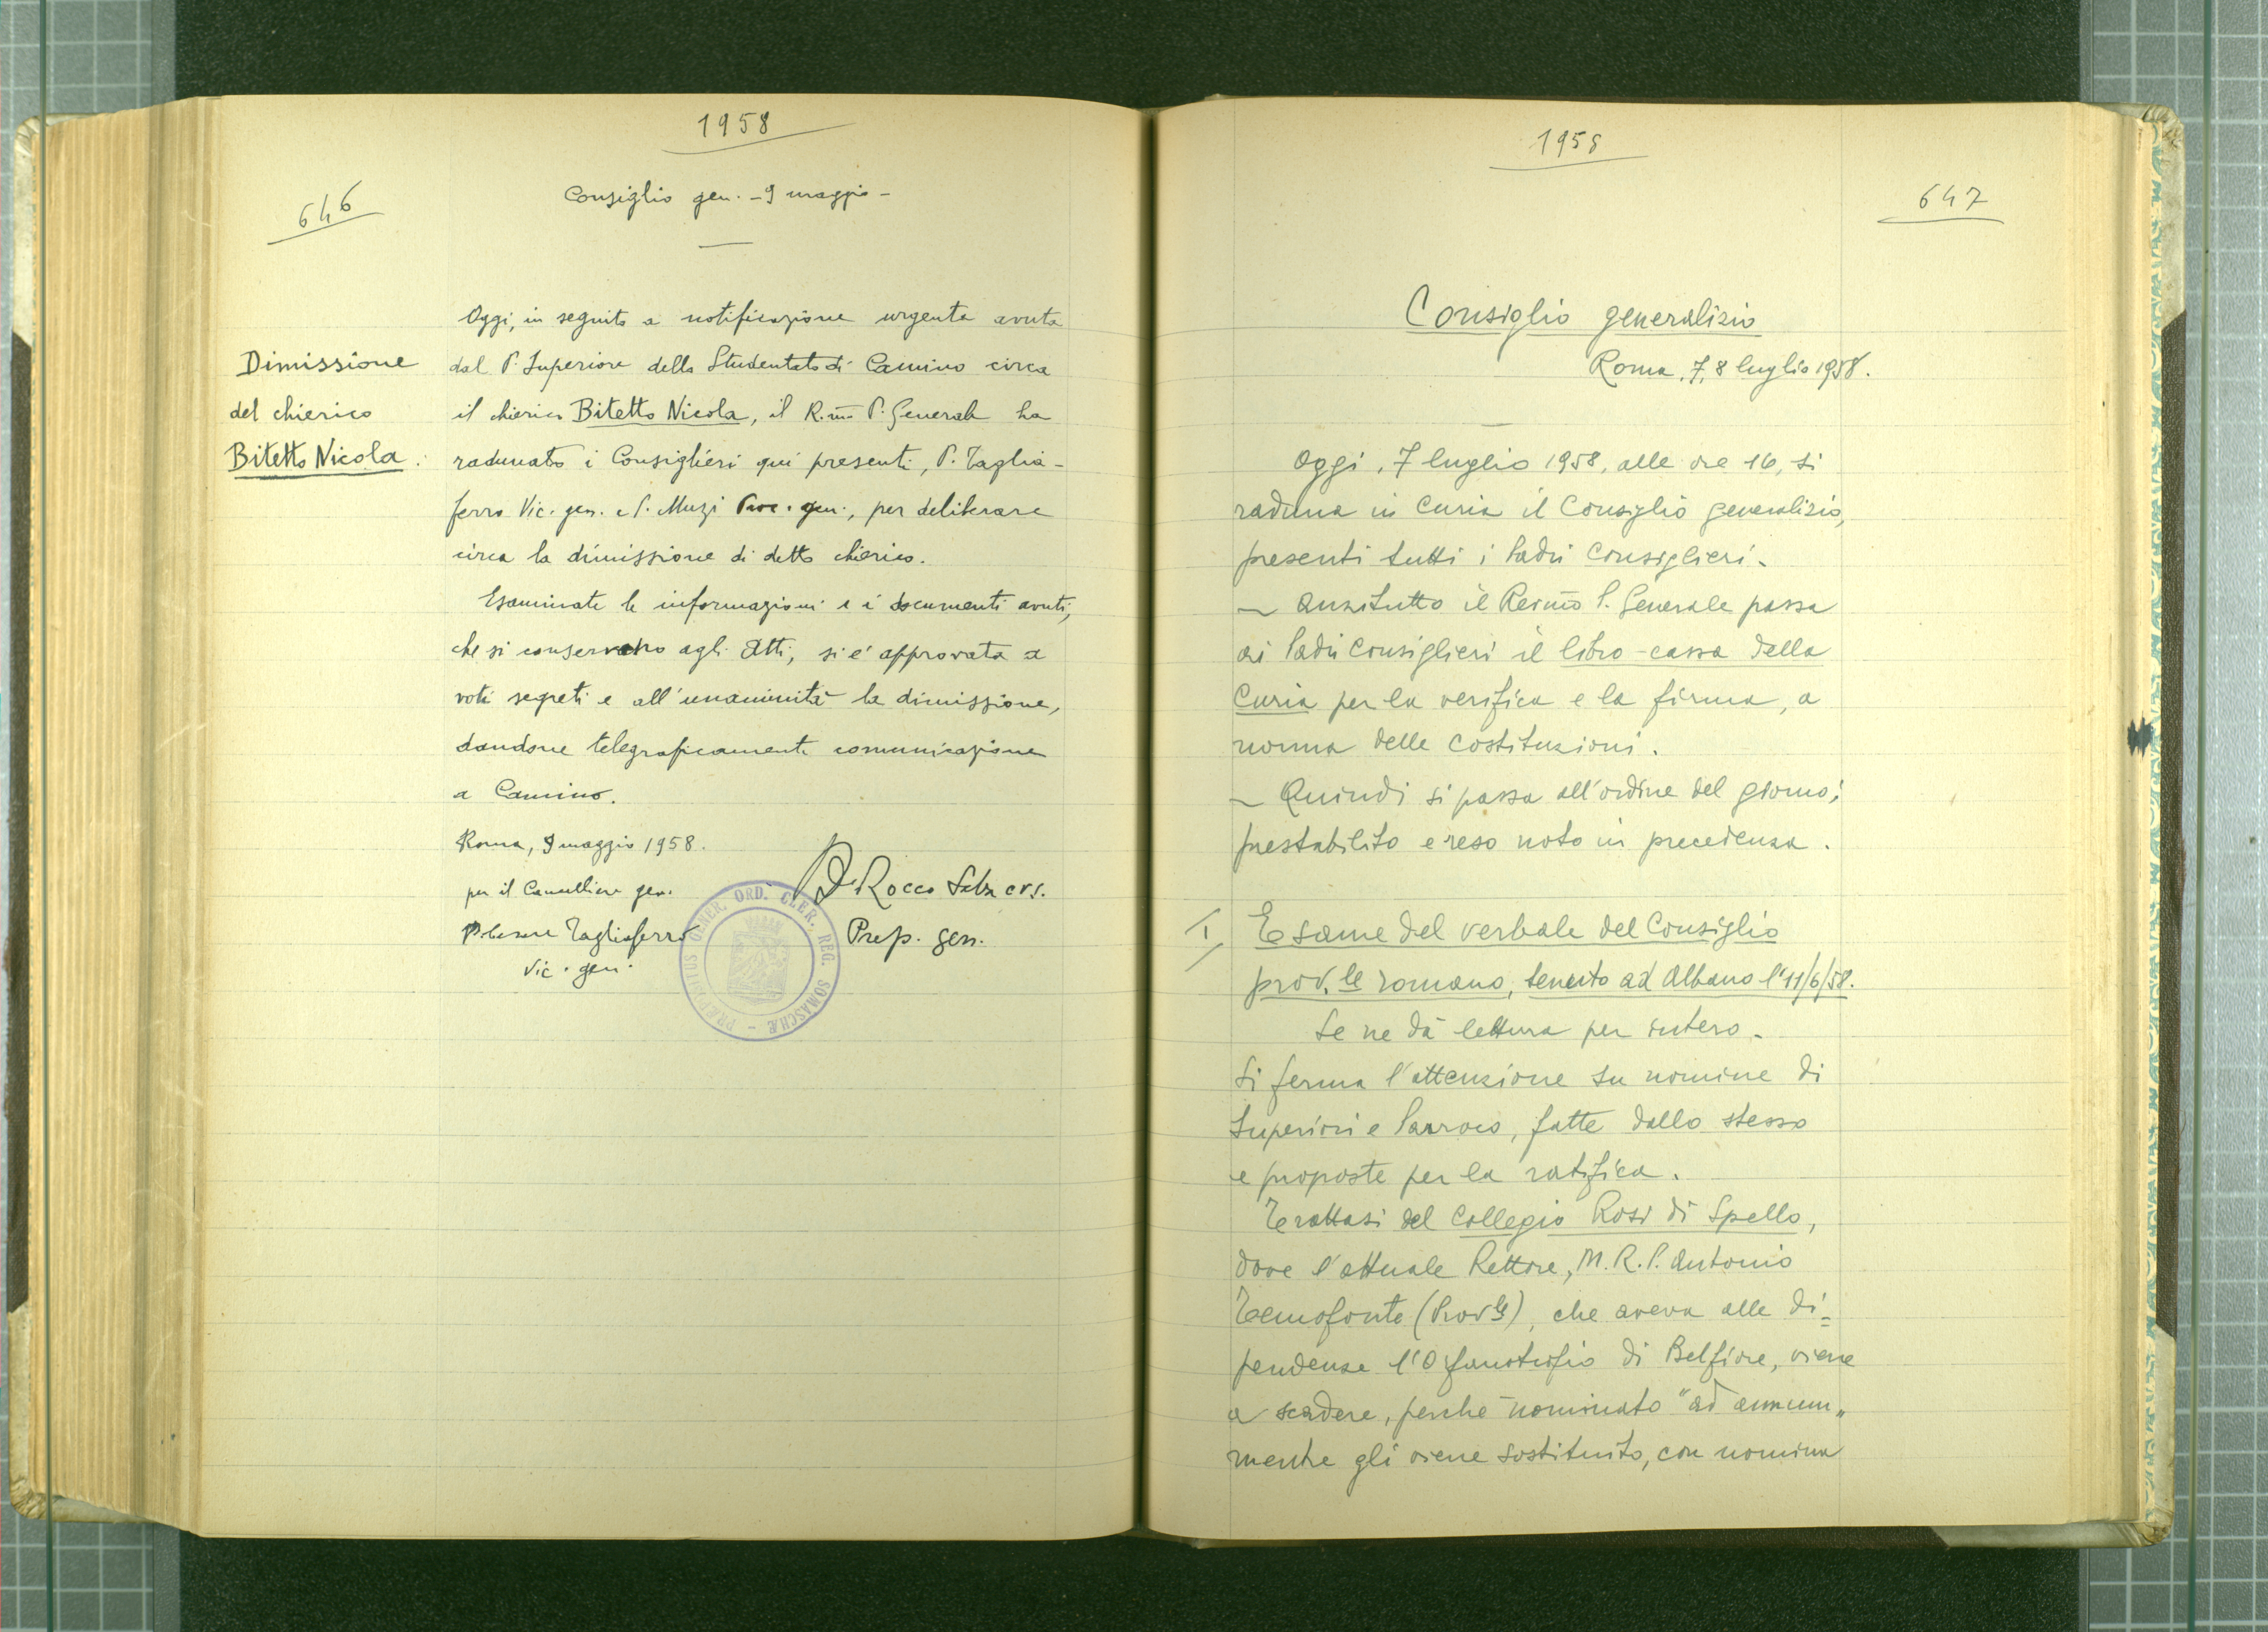 1958
646
Consiglio gen. - 9 maggio -
Dimissione
del chierico
Bitetto Nicola.
Oggi, in seguito a notificazione urgente avuta
dal P. Superiore dello Studentato di Camino circa
il chierico Bitetto Nicola, il R.mo P. Generale ha
radunato i Consiglieri qui presenti, P. Taglia-
ferro Vic. gen. e P. Muzi Proc. gen., per deliberare
circa la dimissione di detto chierico.
Esaminate le informazioni e i documenti avuti,
che si conservano agli Atti, si è approvata a
voti segreti e all'unanimità la dimissione,
dandone telegraficamente comunicazione
a Camino.
Roma, 9 maggio 1958.
per il Cancelliere gen.
P. Cesare Tagliaferro
Vic. gen.
D. Rocco crs.
Prep. gen.
PRÆPOSITUS GENER. ORD. CLER. REG. SOMASCHÆ -
1958
647
Consiglio generalizio
Roma, 7, 8 luglio 1958.
Oggi, 7 luglio 1958, alle ore 16, si
raduna in Curia il Consiglio generalizio,
presenti tutti i Padri Consiglieri.
- Anzitutto il Rev.mo P. Generale passa
ai Padri Consiglieri il libro-cassa della
Curia per la verifica e la firma, a
norma delle Costituzioni.
- Quindi si passa all'ordine del giorno,
prestabilito e reso noto in precedenza.
I) Esame del verbale del Consiglio
prov.le romano, tenuto ad Albano l'11/6/58.
Se ne dà lettura per intero.
Si ferma l'attenzione su nomine di
Superiori e Parroco, fatte dallo stesso
e proposte per la ratifica.
Trattasi del Collegio Rosi di Spello,
dove l'attuale Rettore, M. R. P. Antonio
Temofonte (Prov.le), che aveva alle di=
pendenze l'Orfanotrofio di Belfiore, viene
a scadere, perchè nominato "ad annum"
mentre gli viene sostituito, con nomina